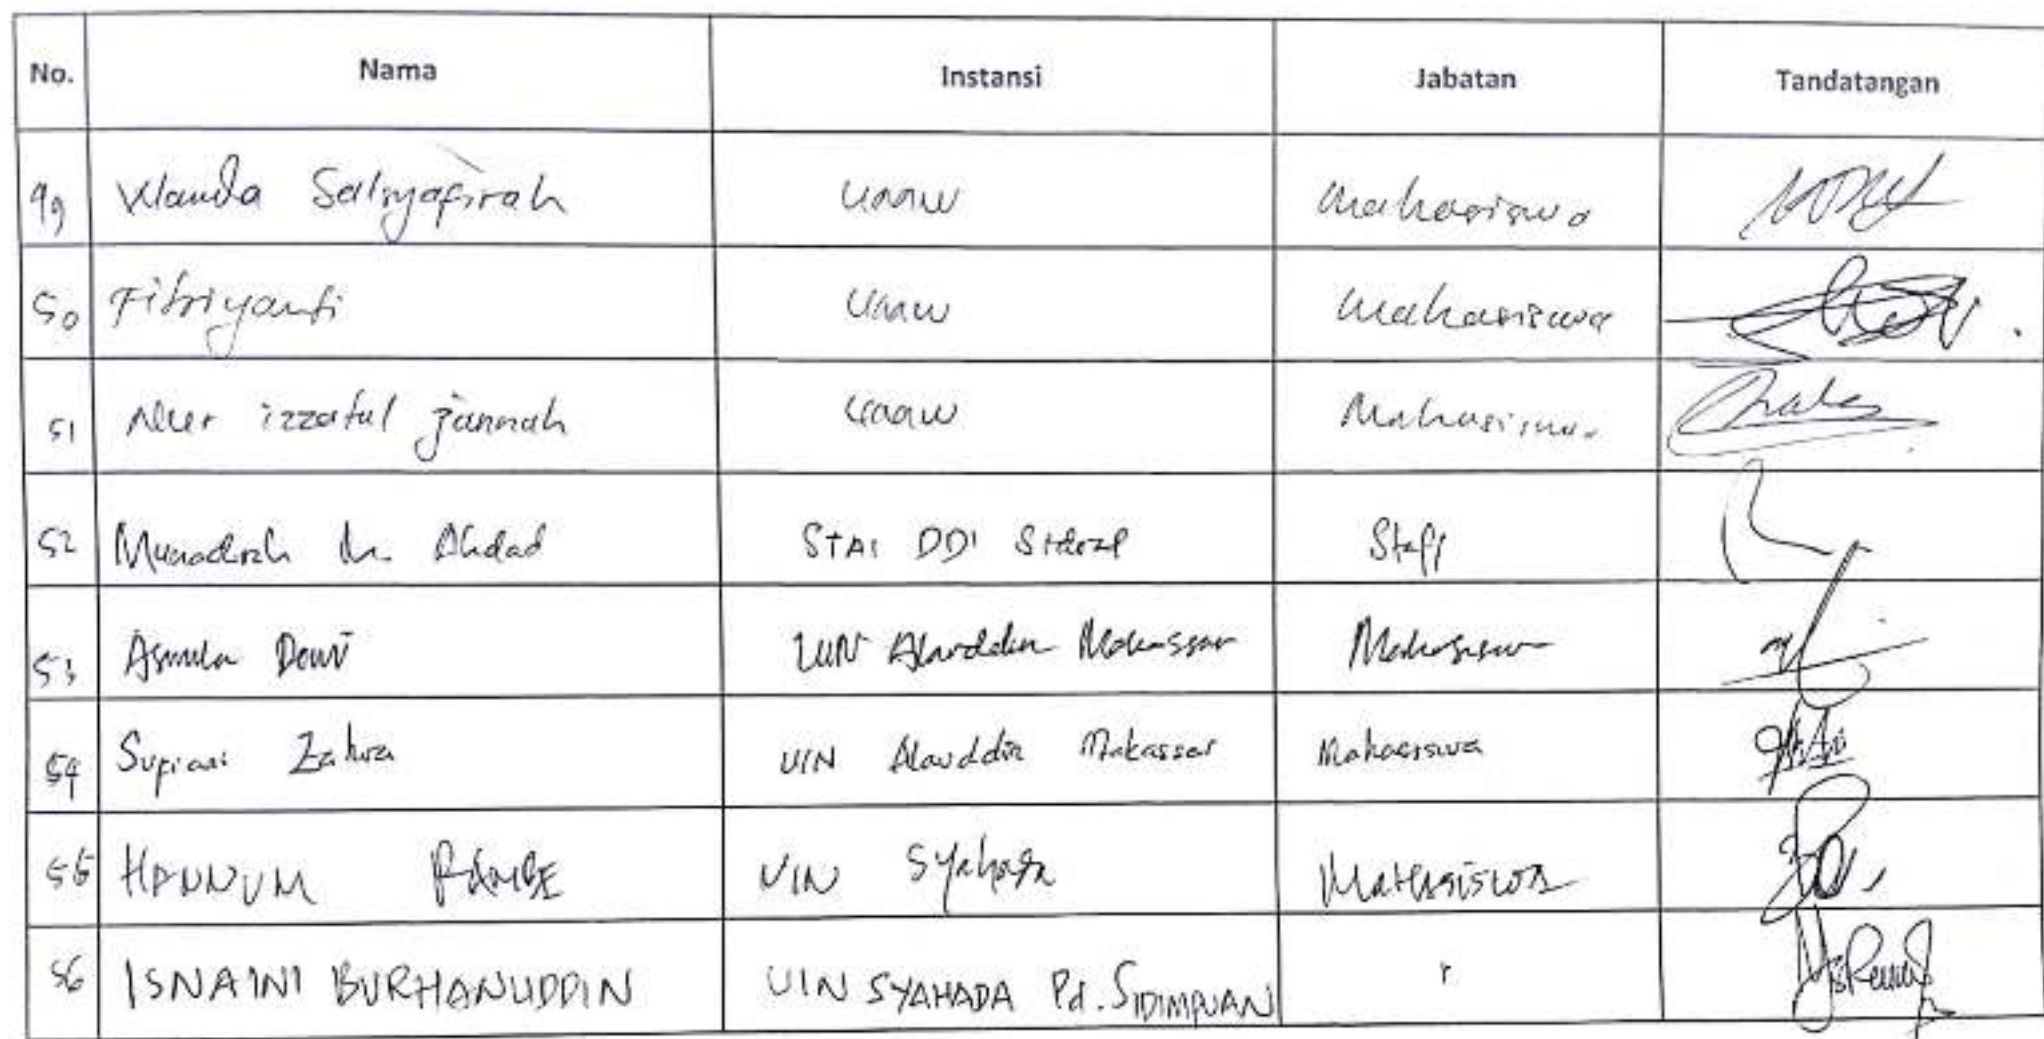 No. Nama Instansi Jabatan Tandatangan
49 Wanda Salsyafirah Mahasiswa
50 Fitriyanti Mahasiswa
51 Nur izzatul jannah Mahasiswa
52 STAI DDI Sidrap Staff
53 Asmula Dewi UIN Alauddin Makassar Mahasiswa
54 Supiani Zahra UIN Alauddin Makassar Mahasiswa
55 HANNUM RAMBE UIN Syahada Mahasiswa
56 ISNAINI BURHANUDDIN UIN SYAHADA Pd. SIDIMPUAN